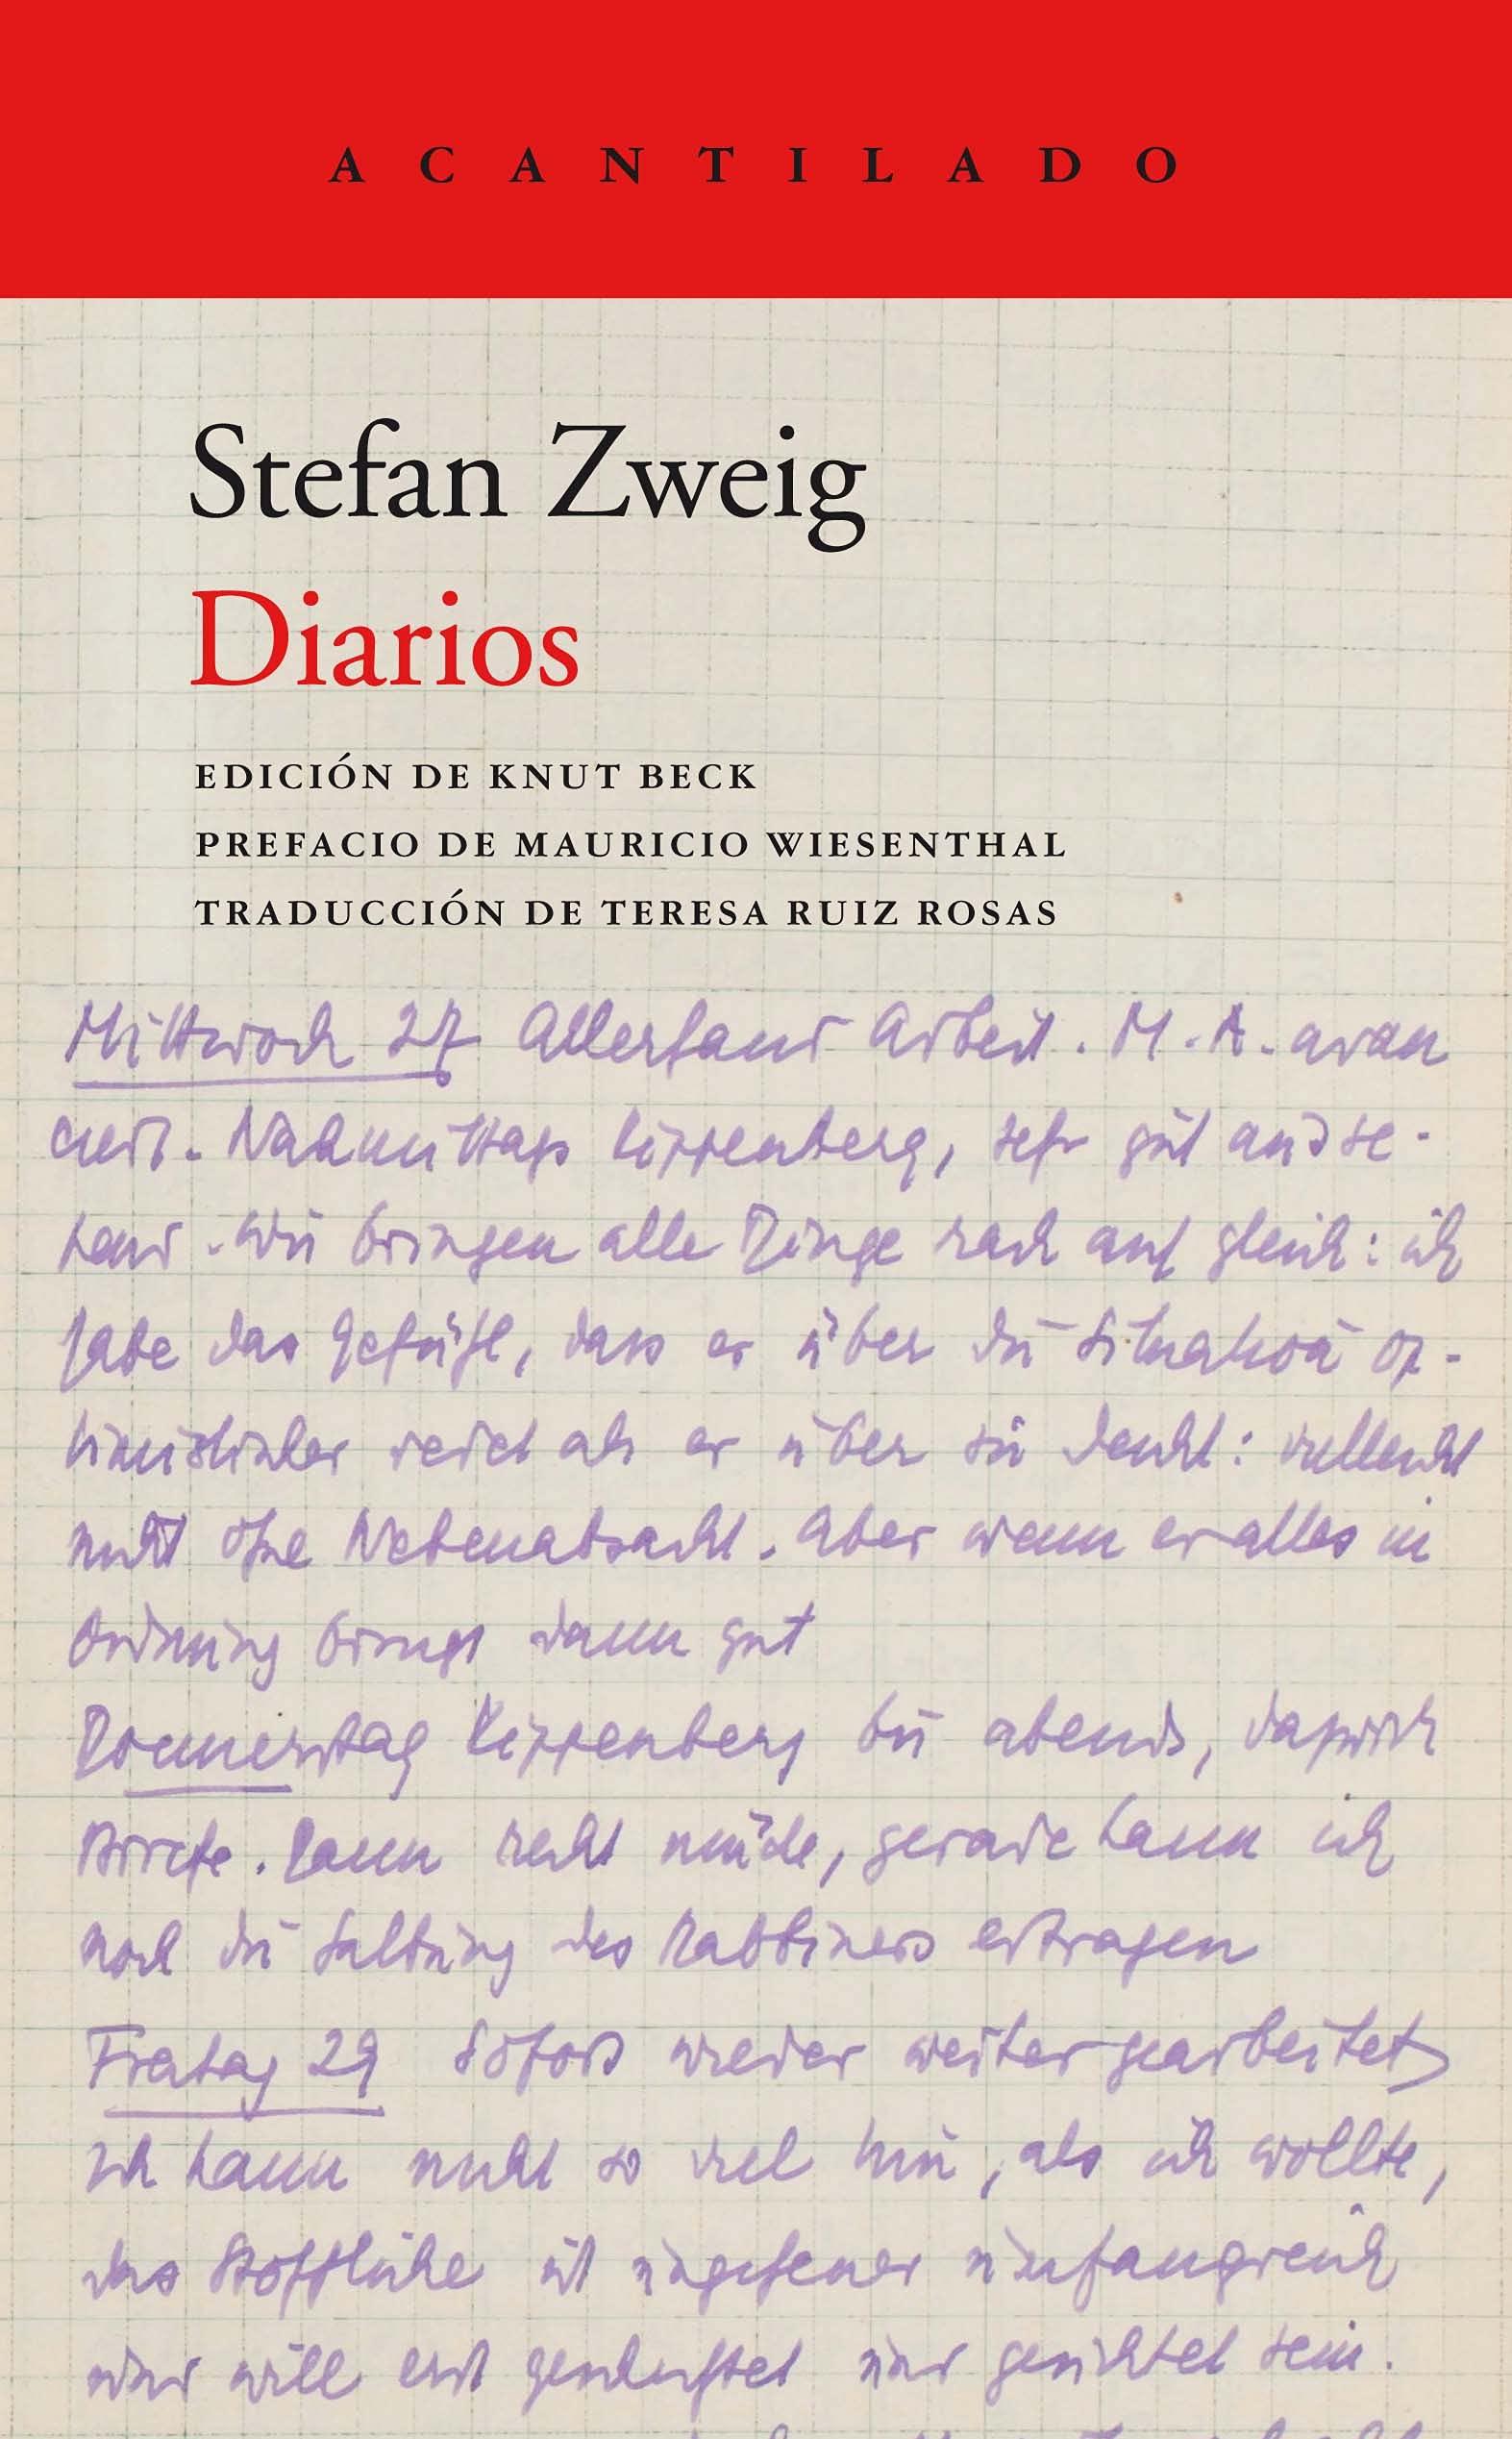 ACANTILADO
Stefan Zweig
Diarios
EDICIÓN DE KNUT BECK
PREFACIO DE MAURICIO WIESENTHAL
TRADUCCIÓN DE TERESA RUIZ ROSAS
Mittwoch 27 Allerhand Arbeit. M. A. avan
ciert. Nachmittags Kippenberg, sehr gut ausse-
hend. Wir bringen alle Dinge rasch auf gleich: ich
habe das Gefühl, dass er über die Situation op-
timistischer redet als er über sie denkt: vielleicht
nicht ohne Nebenabsicht. Aber wenn er alles in
Ordnung bringt dann gut
Donnerstag Kippenberg bis abends, dazwisch
Briefe. Dann recht müde, gerade kann ich
noch die Salbung des Rabbiners ertragen
Freitag 29 Sofort wieder weiter gearbeitet
Ich kann nicht so viel tun, als ich wollte,
das Stoffliche ist ungeheuer umfangreich
und will erst gesichtet sein.